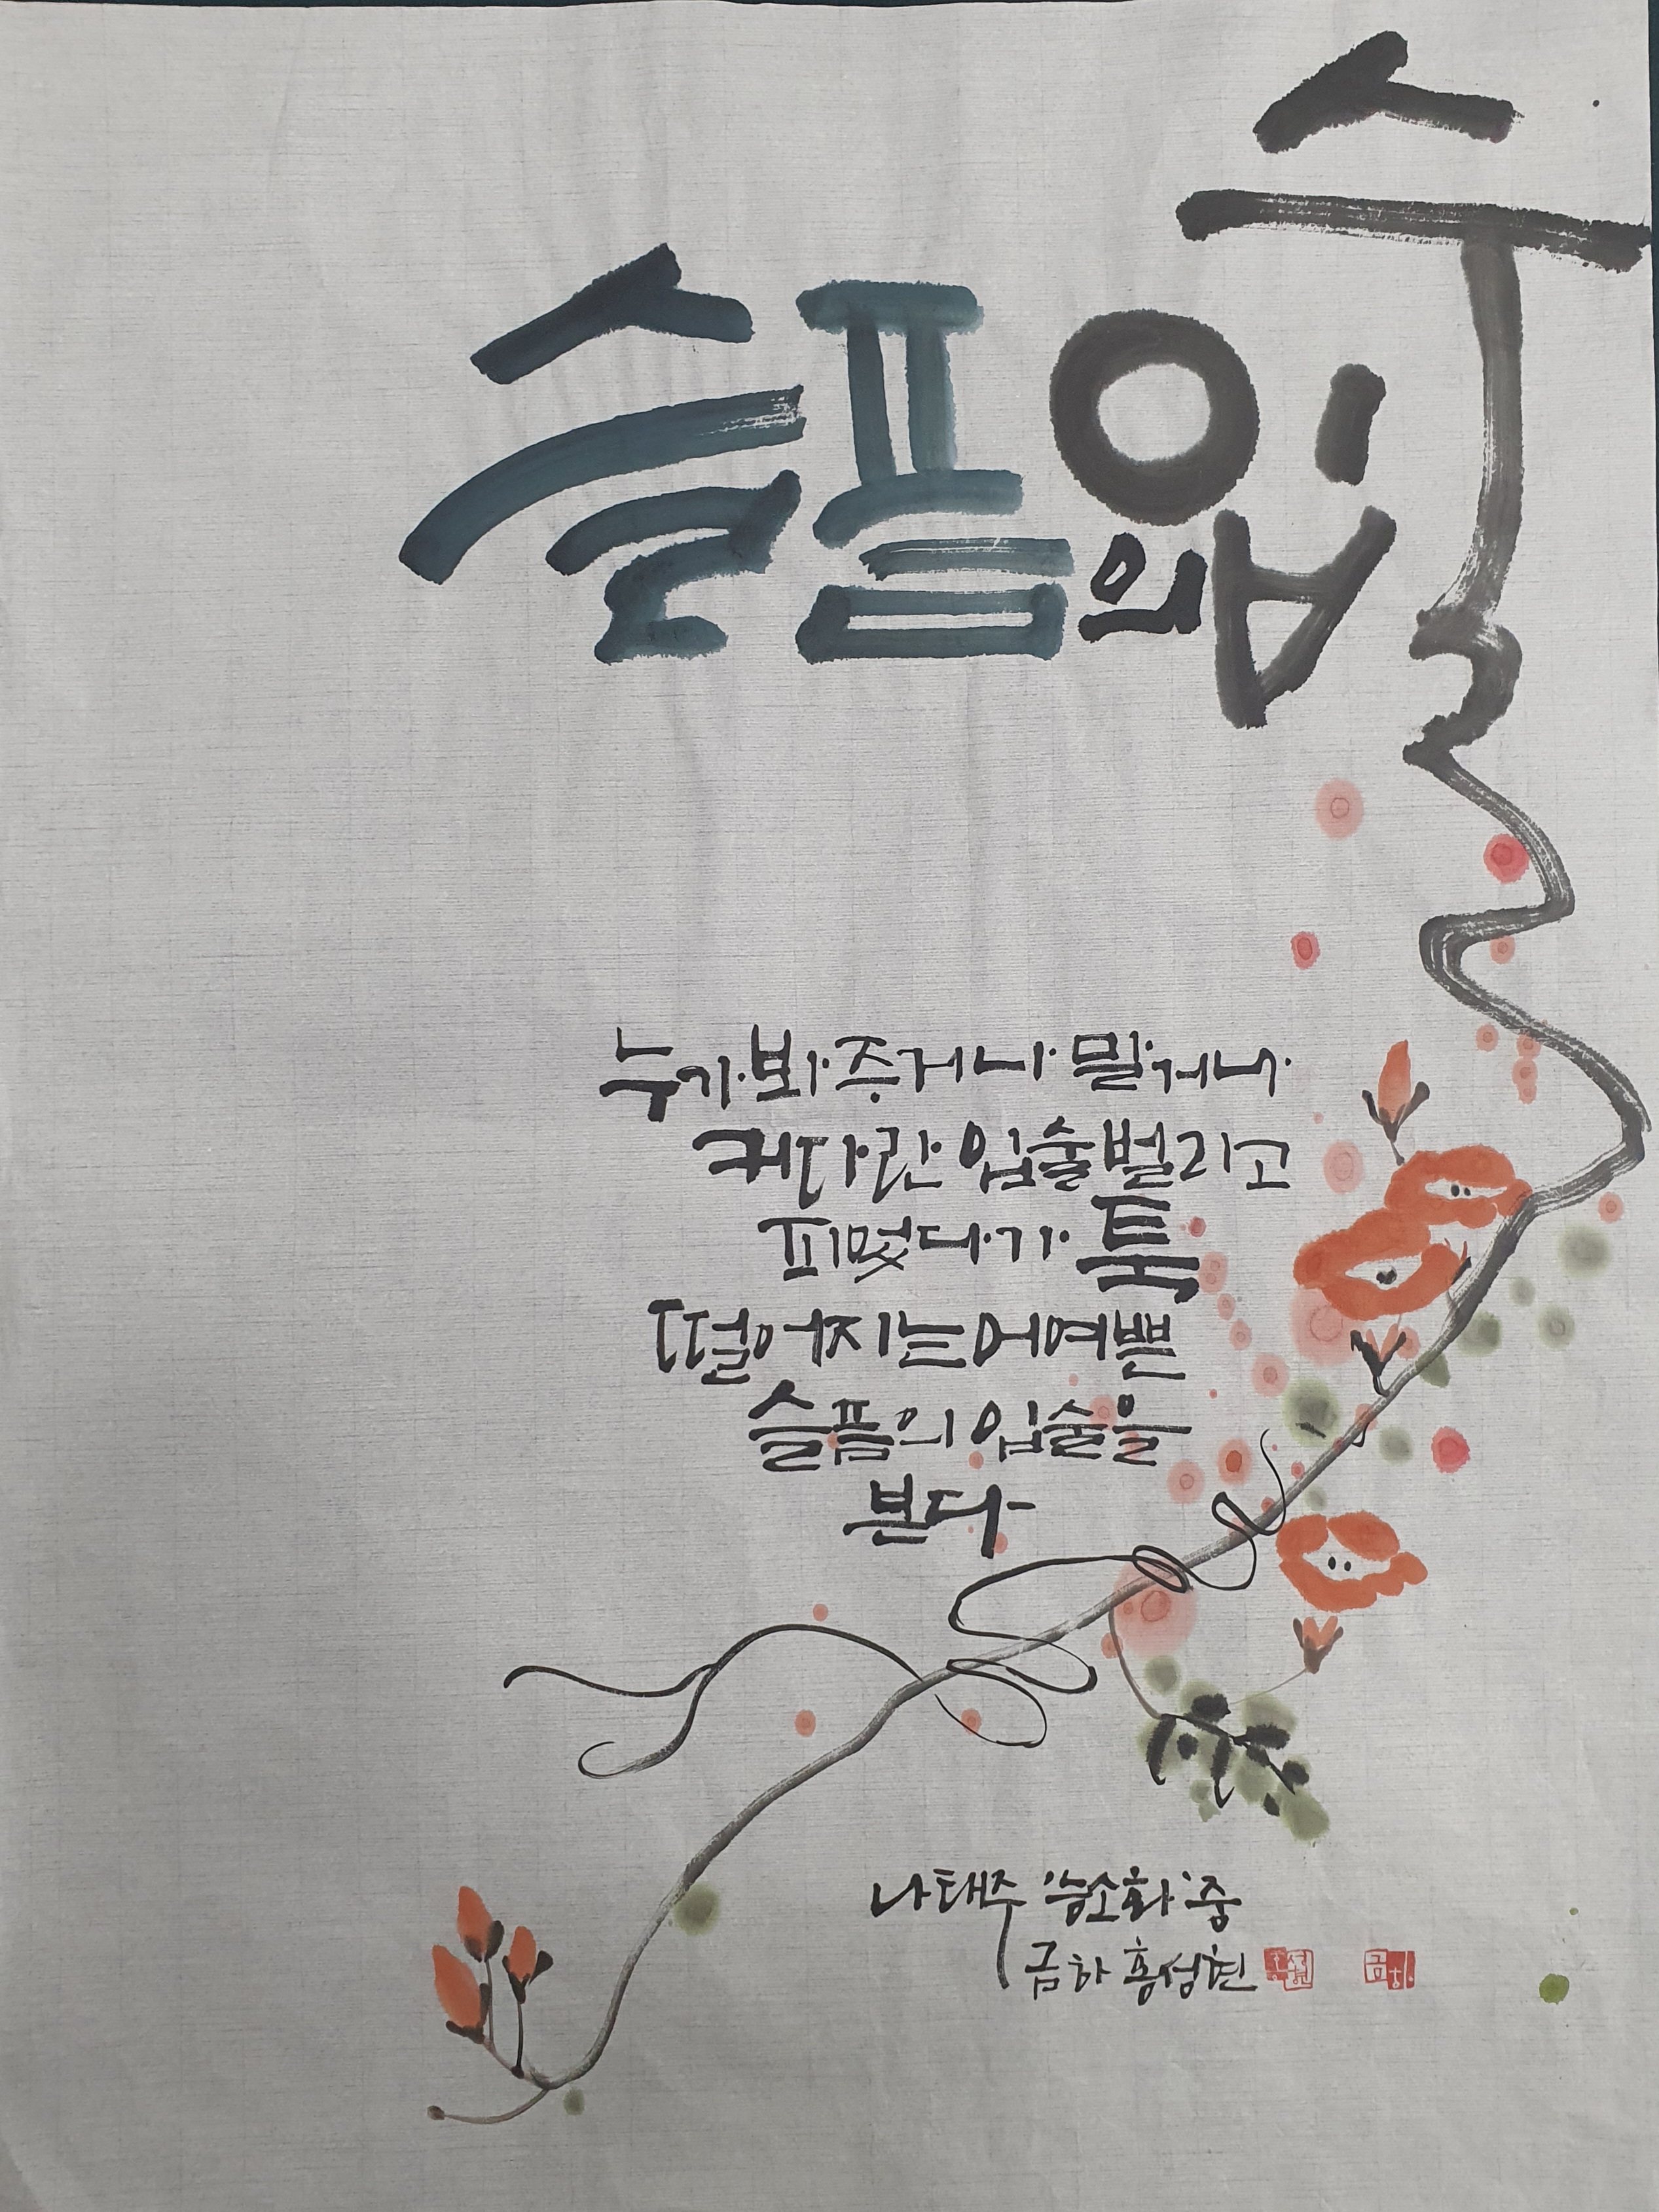 슬픔의 입술
누가 봐 주거나 말거나
커다란 입술 벌리고
피었다가 툭
떨어지는 어여쁜
슬픔의 입술을
본다
나태주 '능소화' 중
금하 홍성현
금하